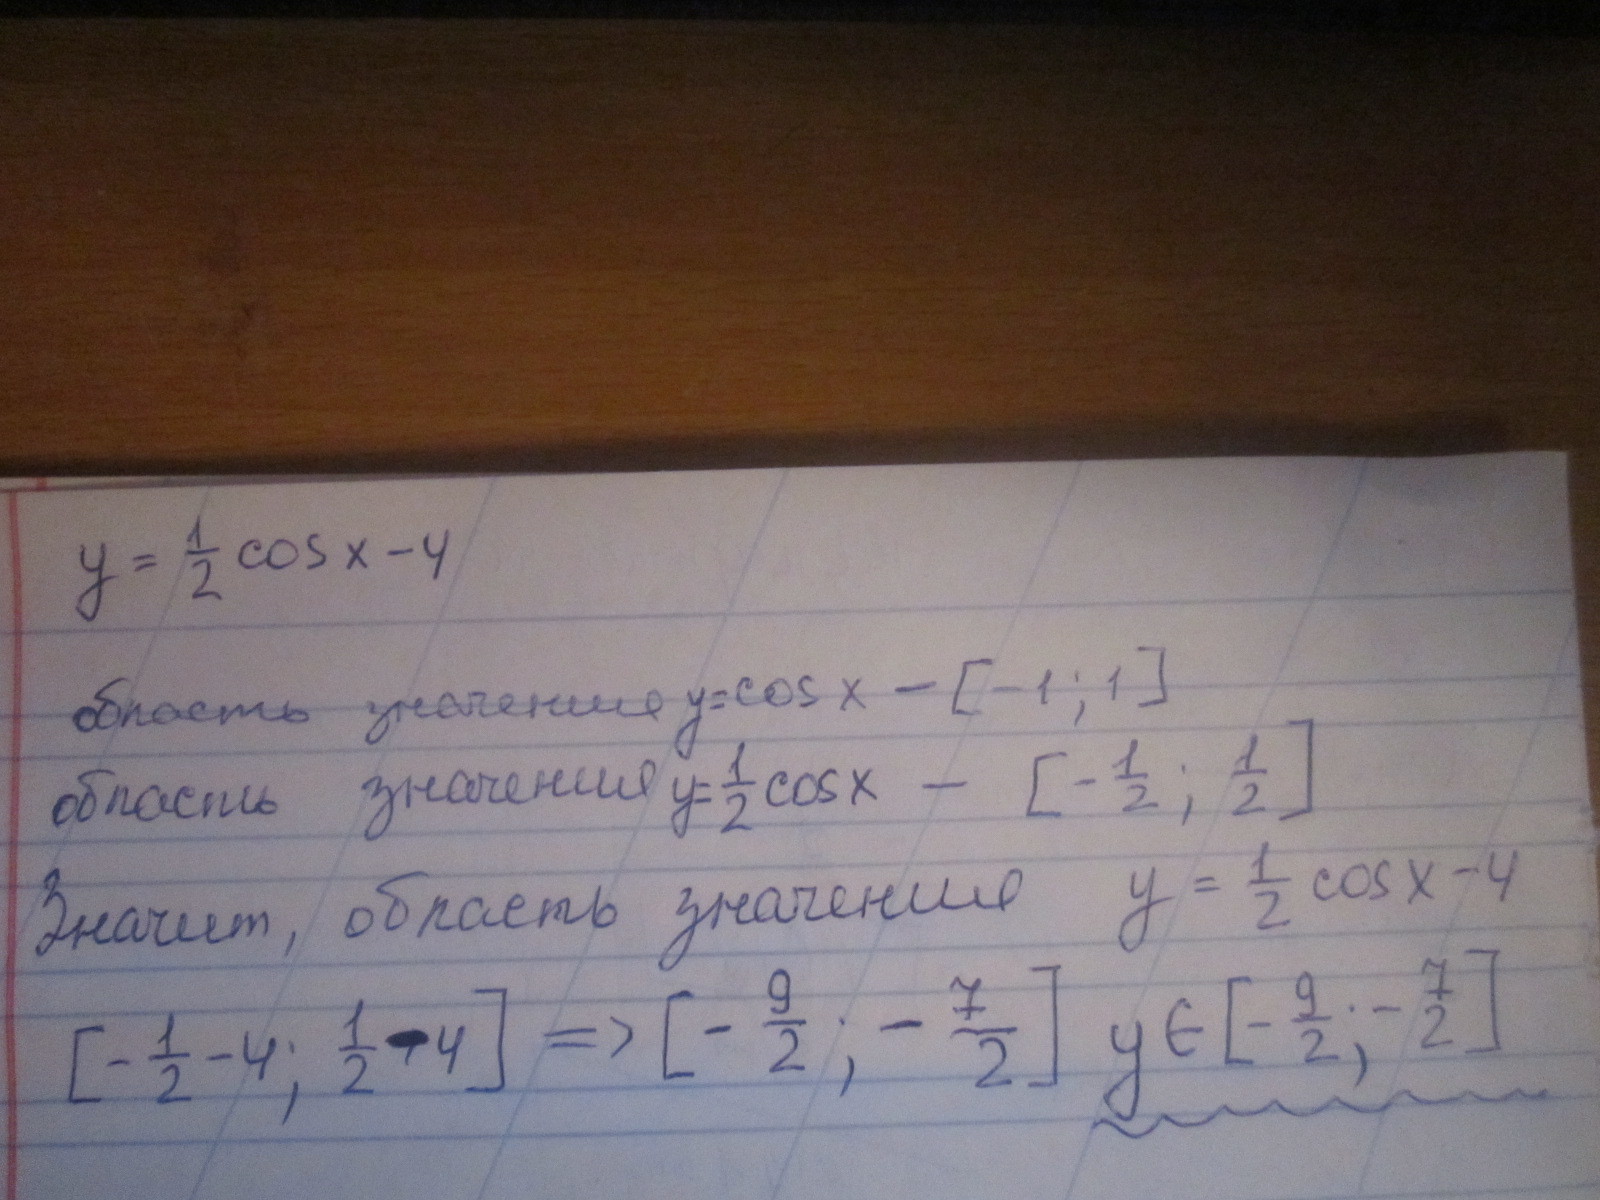 y = 1/2 cos x - 4
область значения y = cos x - [-1; 1]
область значения y = 1/2 cos x - [-1/2; 1/2]
Значит, область значения y = 1/2 cos x - 4
[-1/2 - 4; 1/2 - 4] => [-9/2; -7/2] y ∈ [-9/2; -7/2]